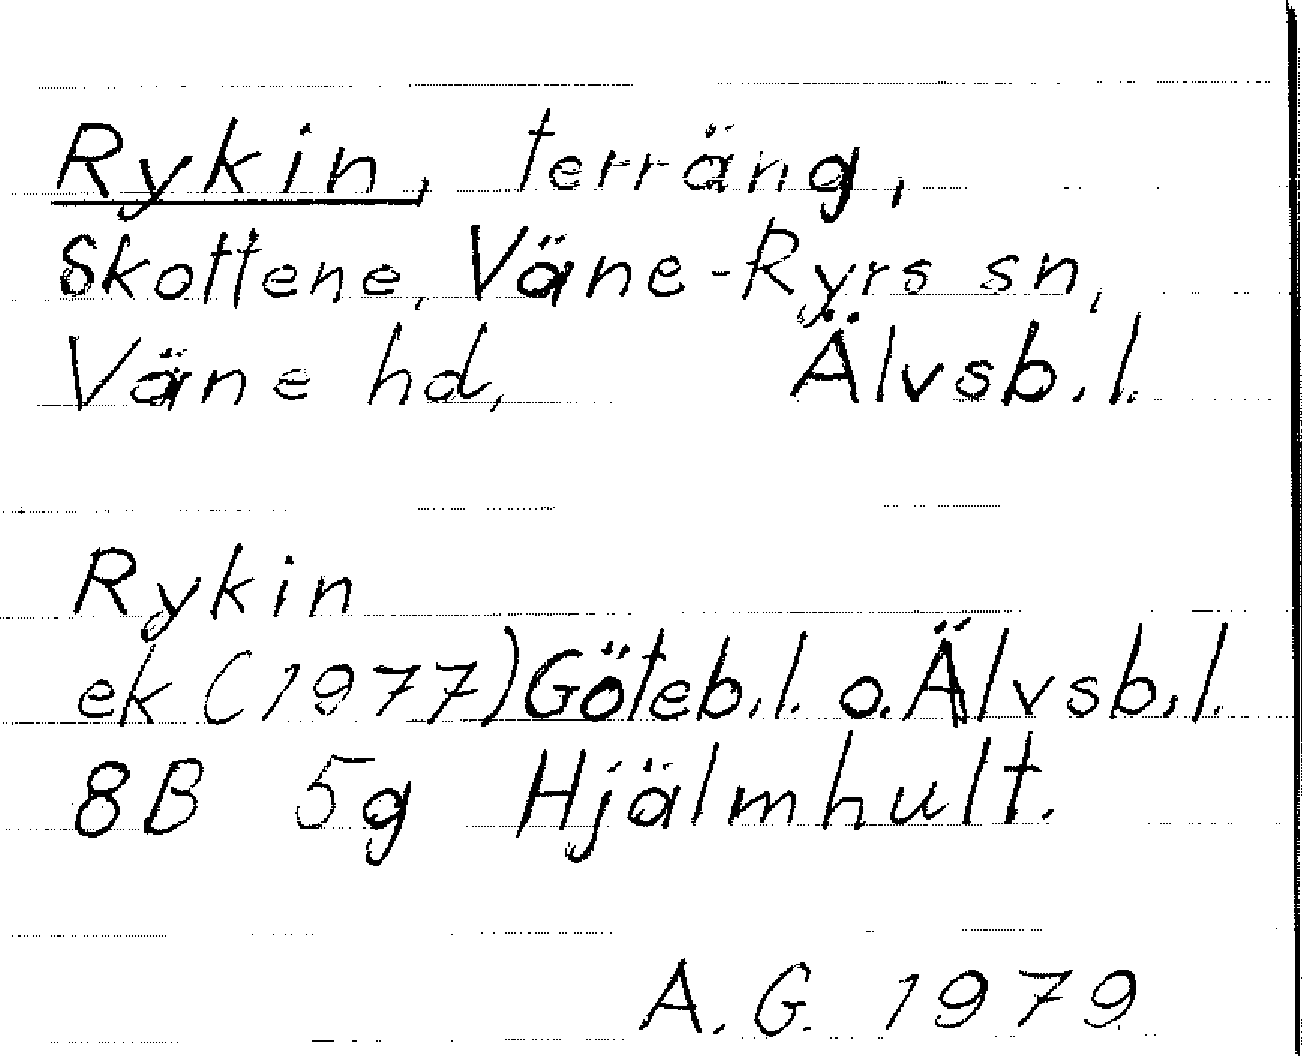 Rykin, terräng,
Skottene, Väne-Ryrs sn,
Väne hd, Älvsb.l.
Rykin
ek (1977) Göteb.l. o. Älvsb.l.
8B 5g Hjälmhult.
A.G. 1979